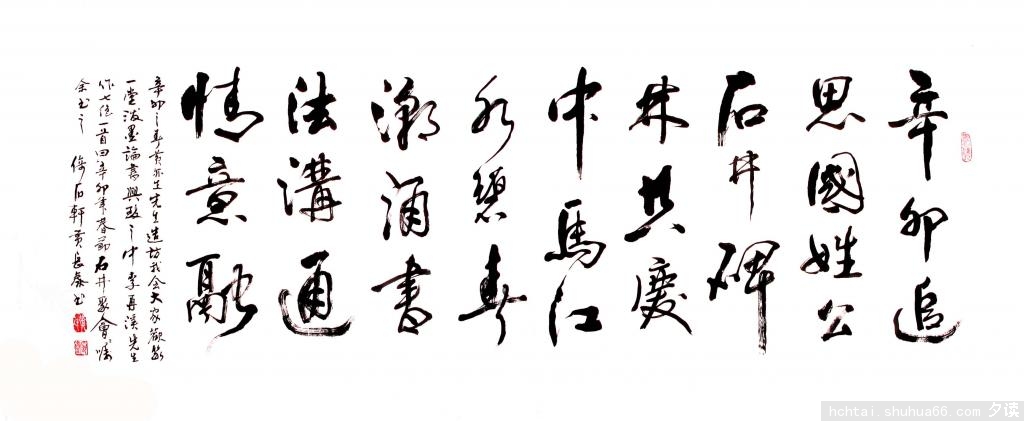 辛卯追
思國姓公
石井碑
林共慶
中馬江
水碧春
潮涌書
法溝通
情意融
辛卯之春黄亦生先生造訪我会大家歡聚
一堂潑墨論書興致之中李再溪先生
作七絶一首曰辛卯年春節石井聚會囑
余书之 倚石軒黄長春书
hchtai.shuhua66.com 夕读